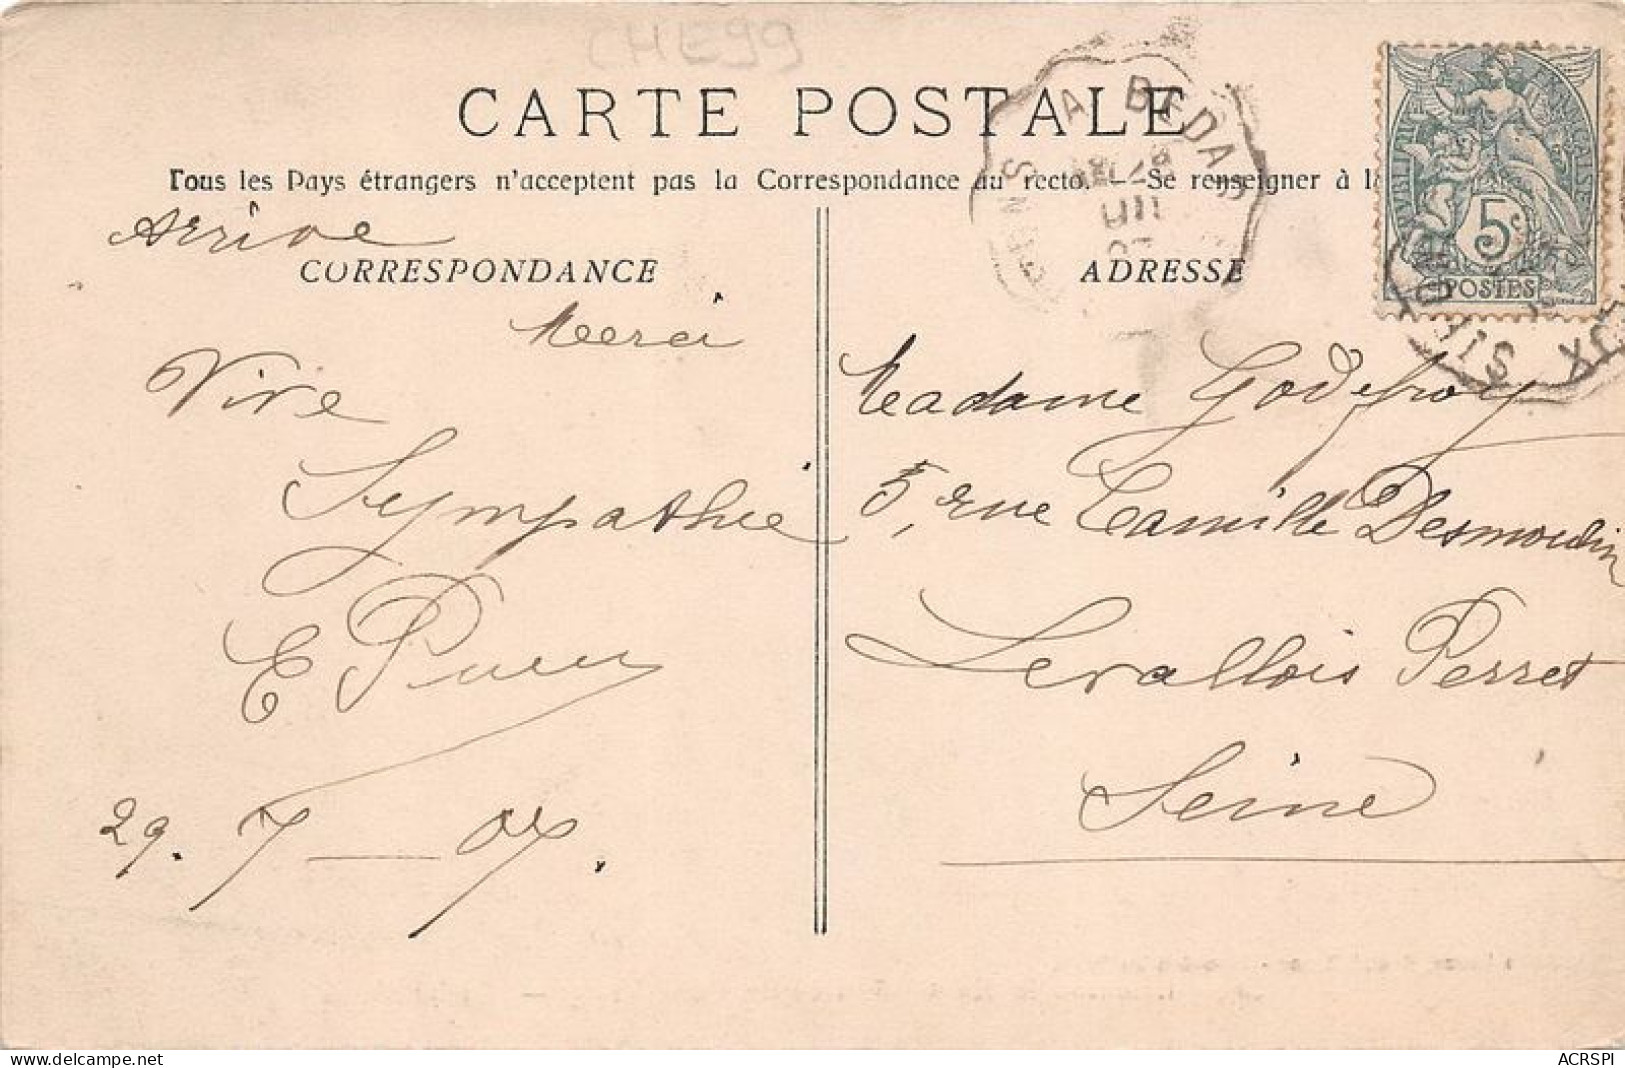 CHE99
CARTE POSTALE
Tous les Pays étrangers n'acceptent pas la Correspondance au recto. — Se renseigner à la
CORRESPONDANCE
Arrive
Merci
Vive
Sympathie
E
29. 7 — 07.
A BEDA
ADRESSE
RÉPUBLIQUE FRANÇAISE
5c
POSTES
Madame Godefroy
5, rue Camille Desmoulin
Levallois Perret
Seine
delcampe.net
ACRSPI